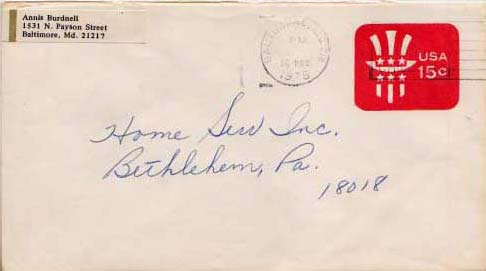 Annis Burdnell
1531 N. Payson Street
Baltimore, Md. 21217
PM
1978
USA
15c
Home Serv Inc.
Bethlehem, Pa.
18018